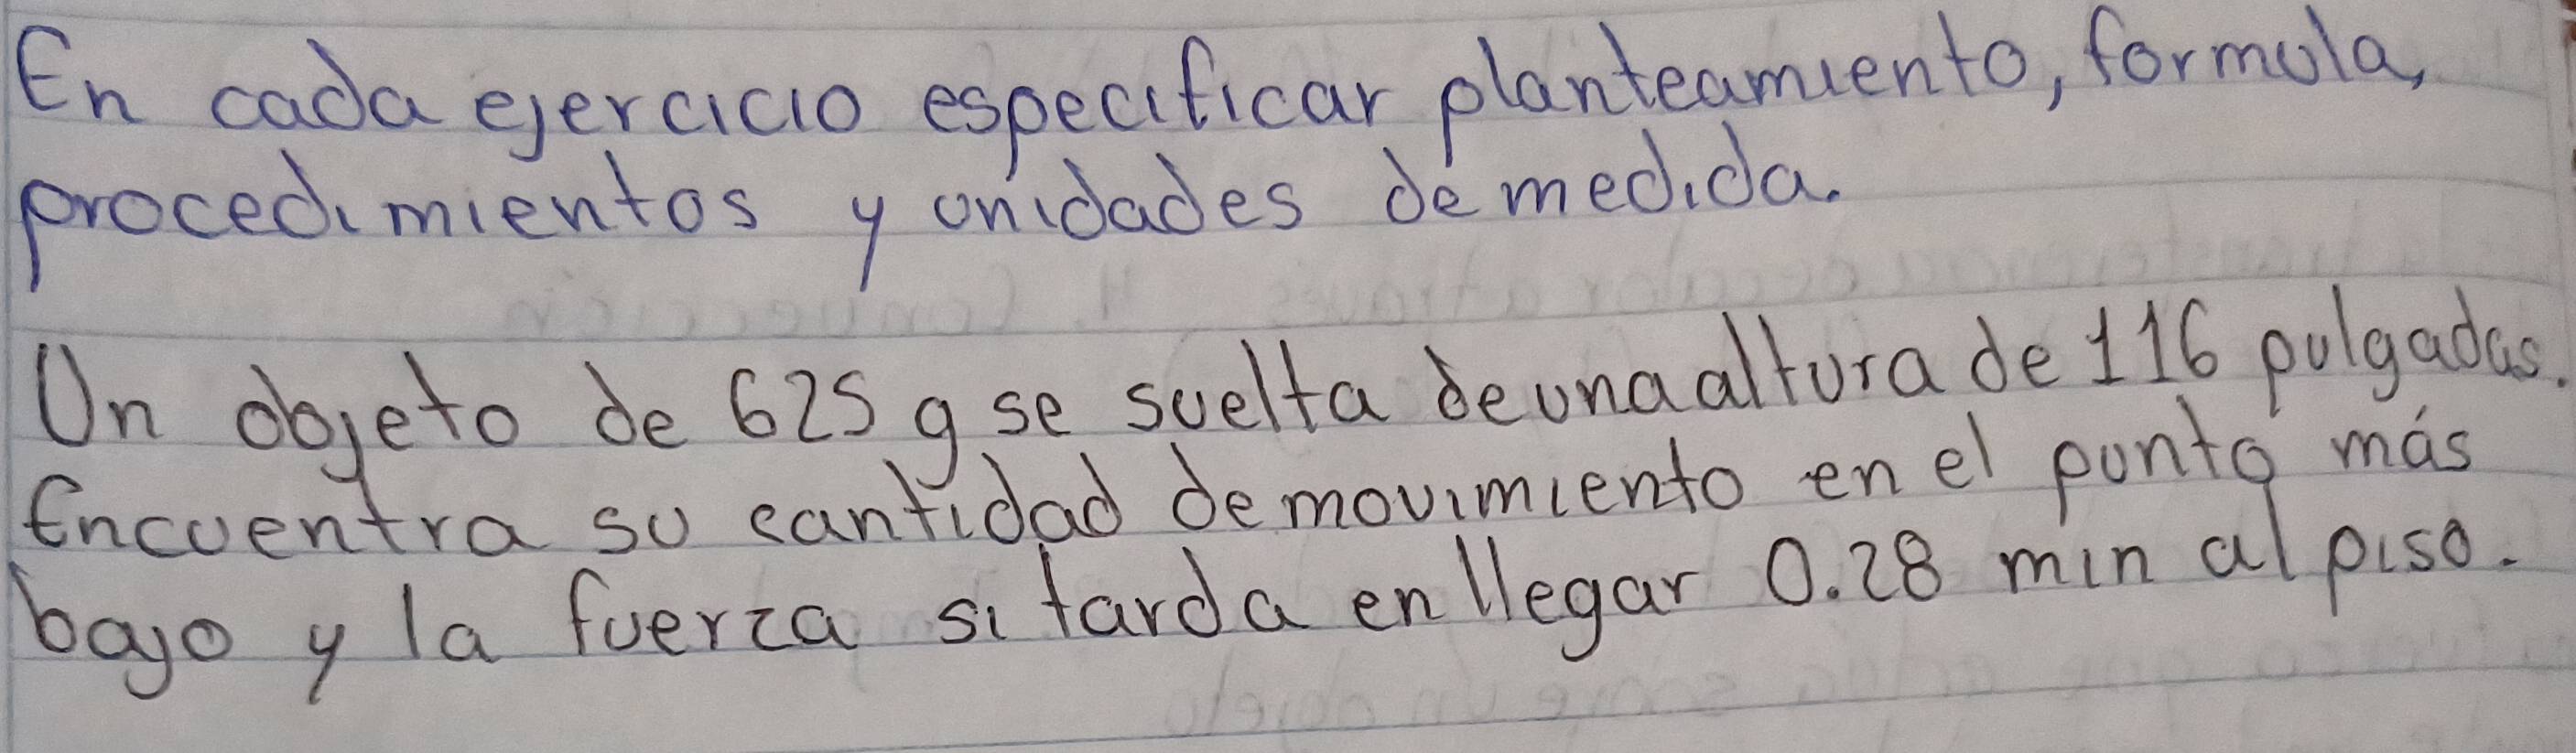 En cada ejercicio especificar planteamiento, formula,
procedimientos y unidades de medida.
Un objeto de 625 g se suelta de una altura de 116 pulgadas.
Encuentra su cantidad de movimiento en el punto más
bajo y la fuerza si tarda en llegar 0.28 min al piso.